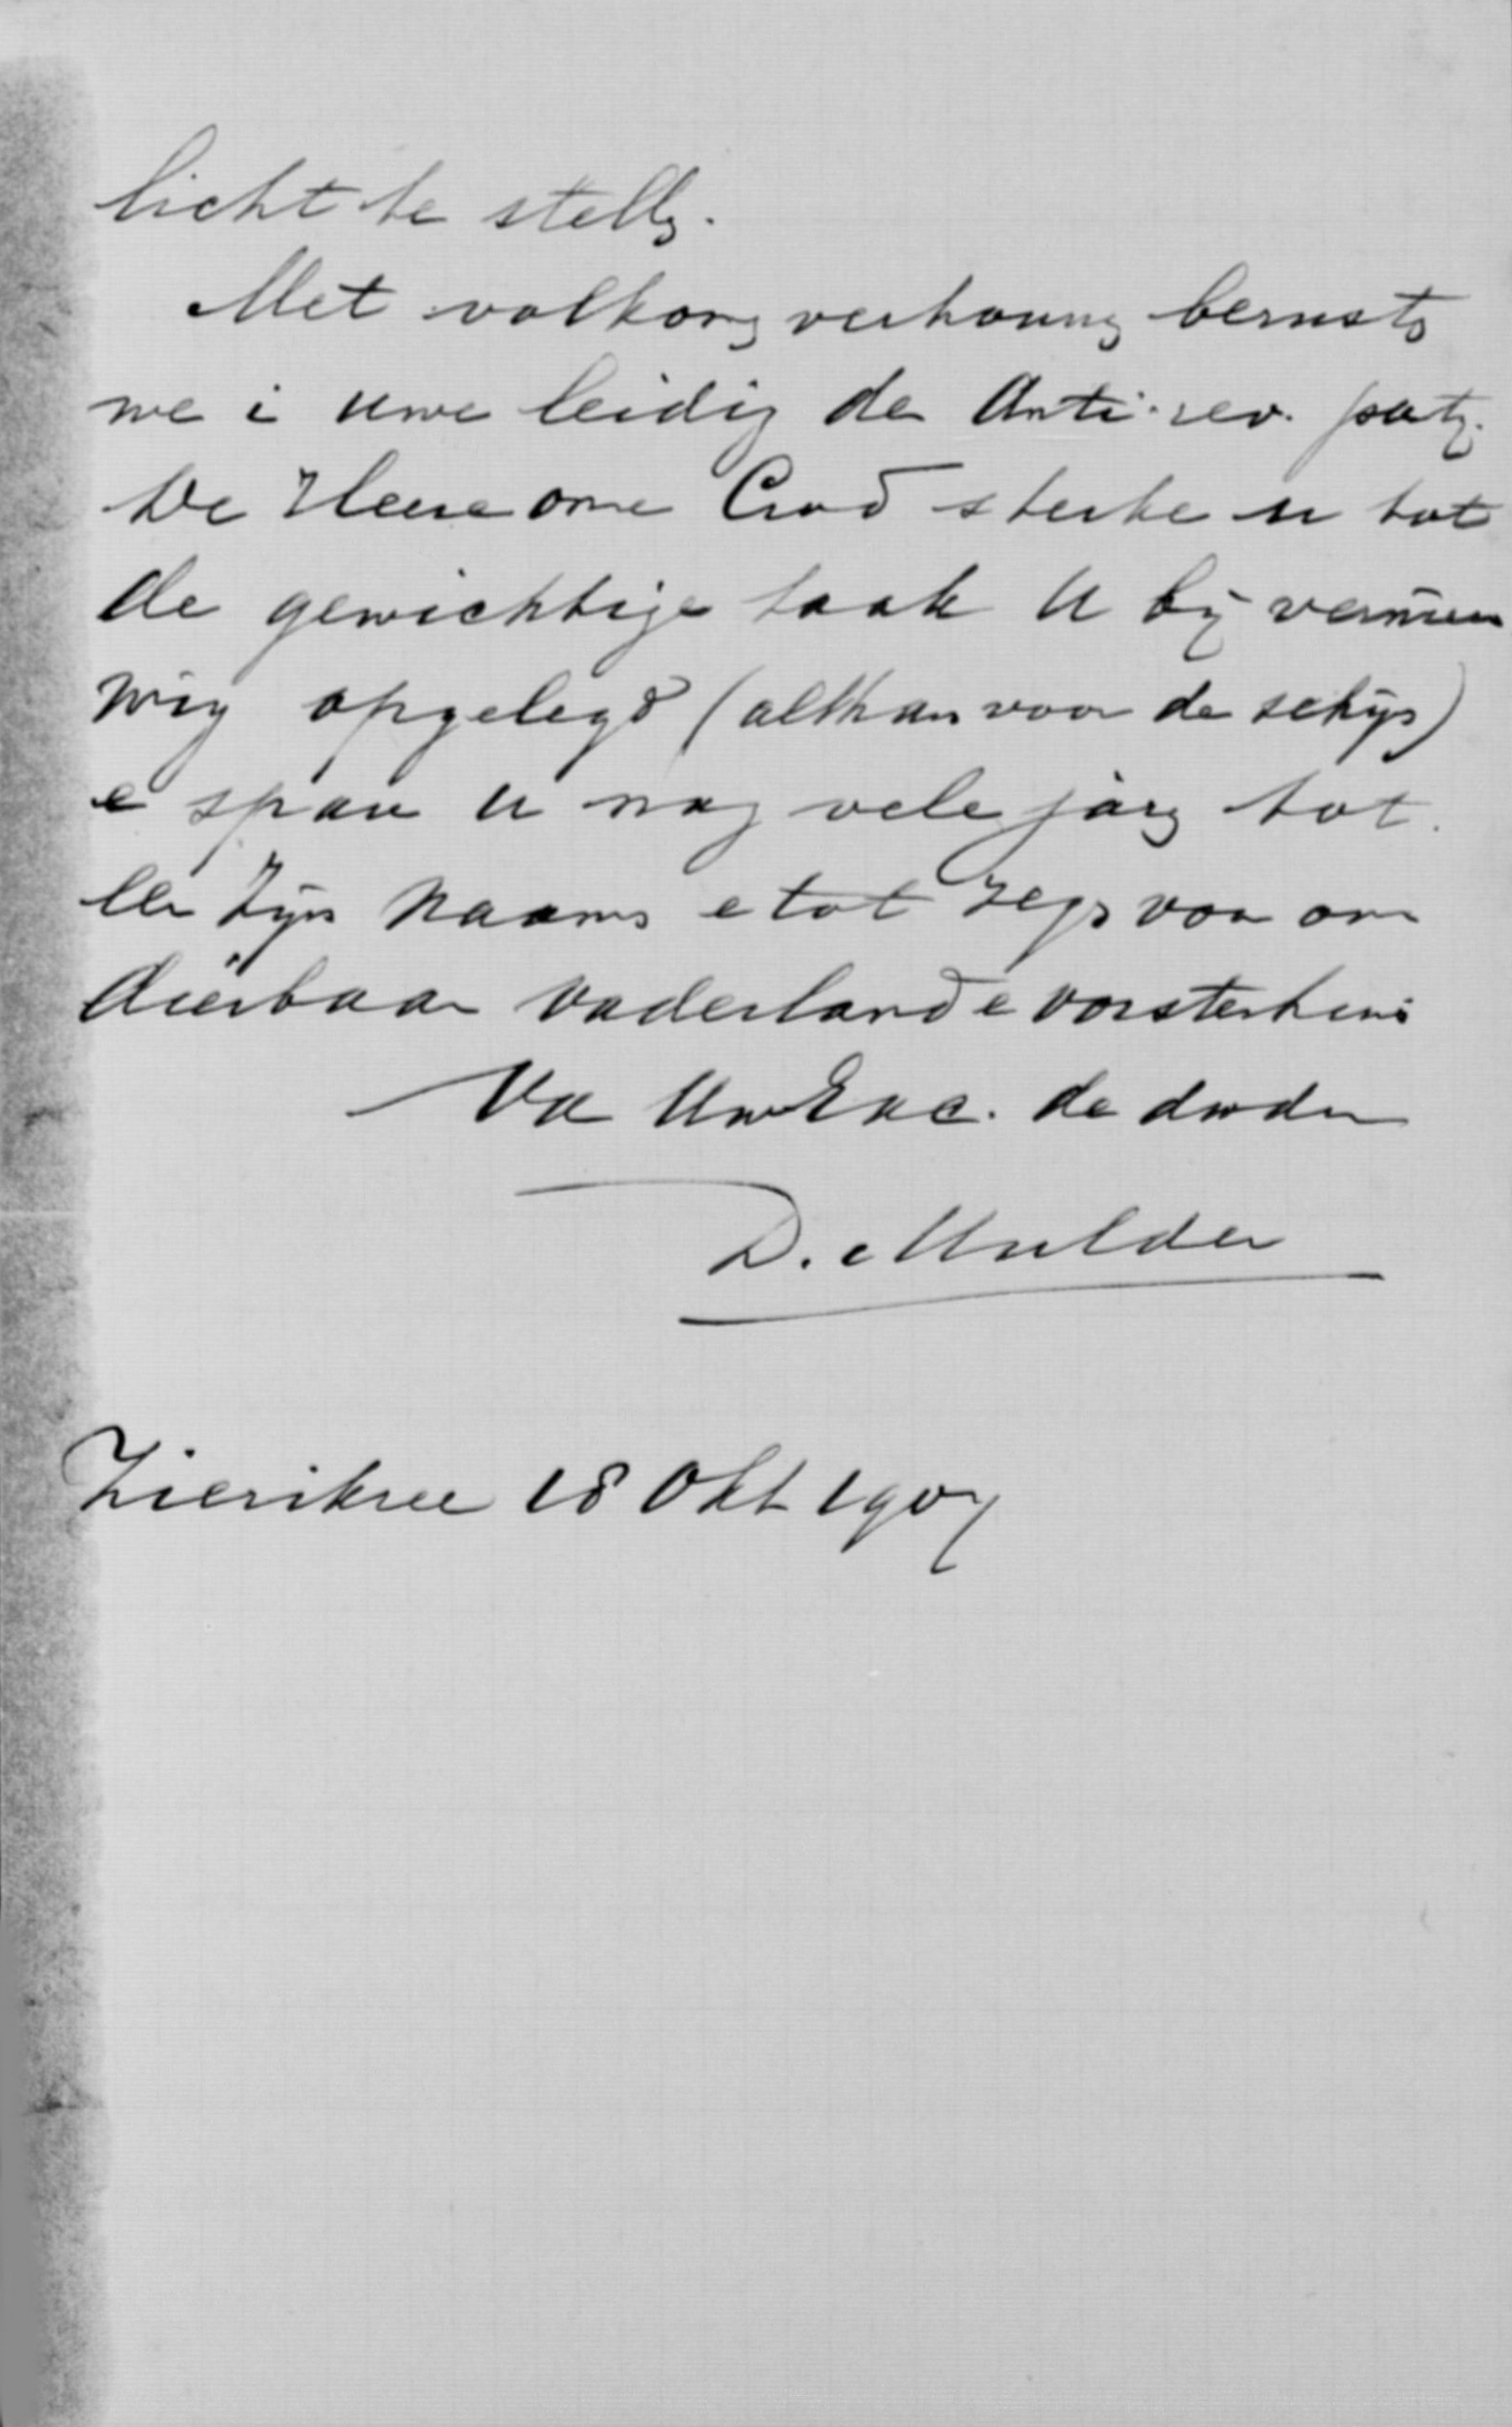 licht te stellen.
Met volkomen vertrouwen berusten
we in uwe leiding der Anti-rev. partij.
De Heere onze God sterke u tot
de gewichtige taak U bij vernieu
wing opgelegd (althans voor de schijn)
en spare u nog vele jaren tot
eer Zijns Naams en tot zegen voor ons
dierbaar Vaderland en Vorstenhuis
Van Uw Exc. de dwdr
D. Mulder
Zierikzee 18 Okt 1907